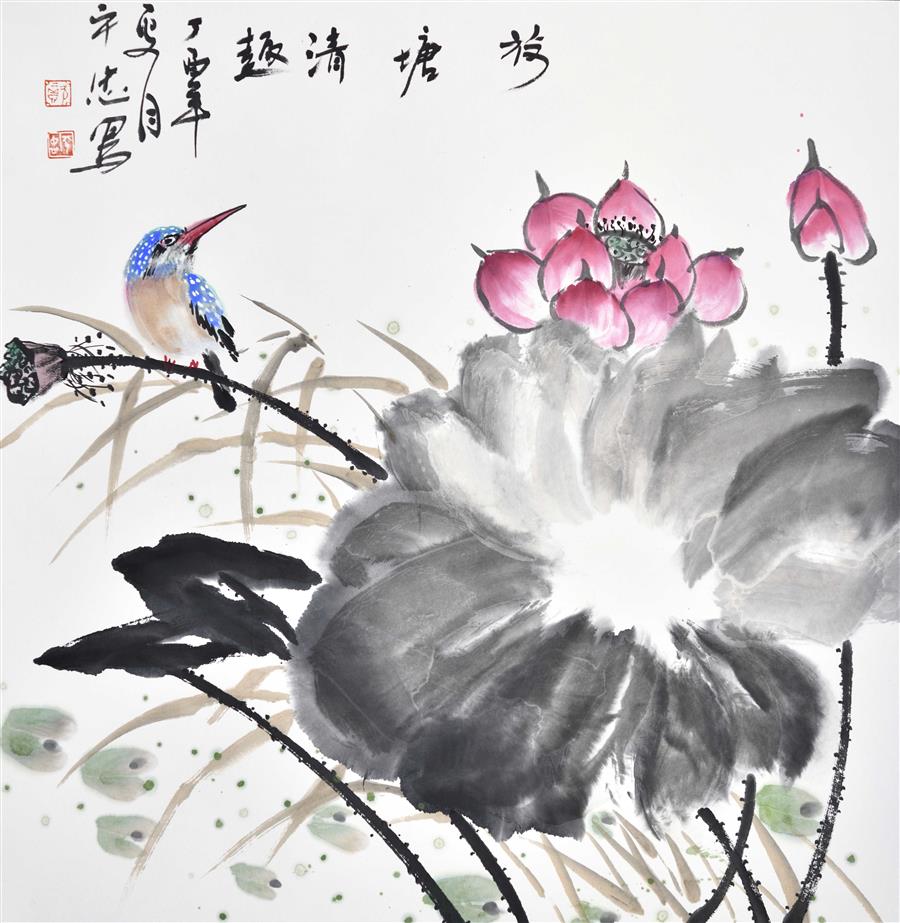 荷塘清趣
丁酉年
夏月
守忠寫